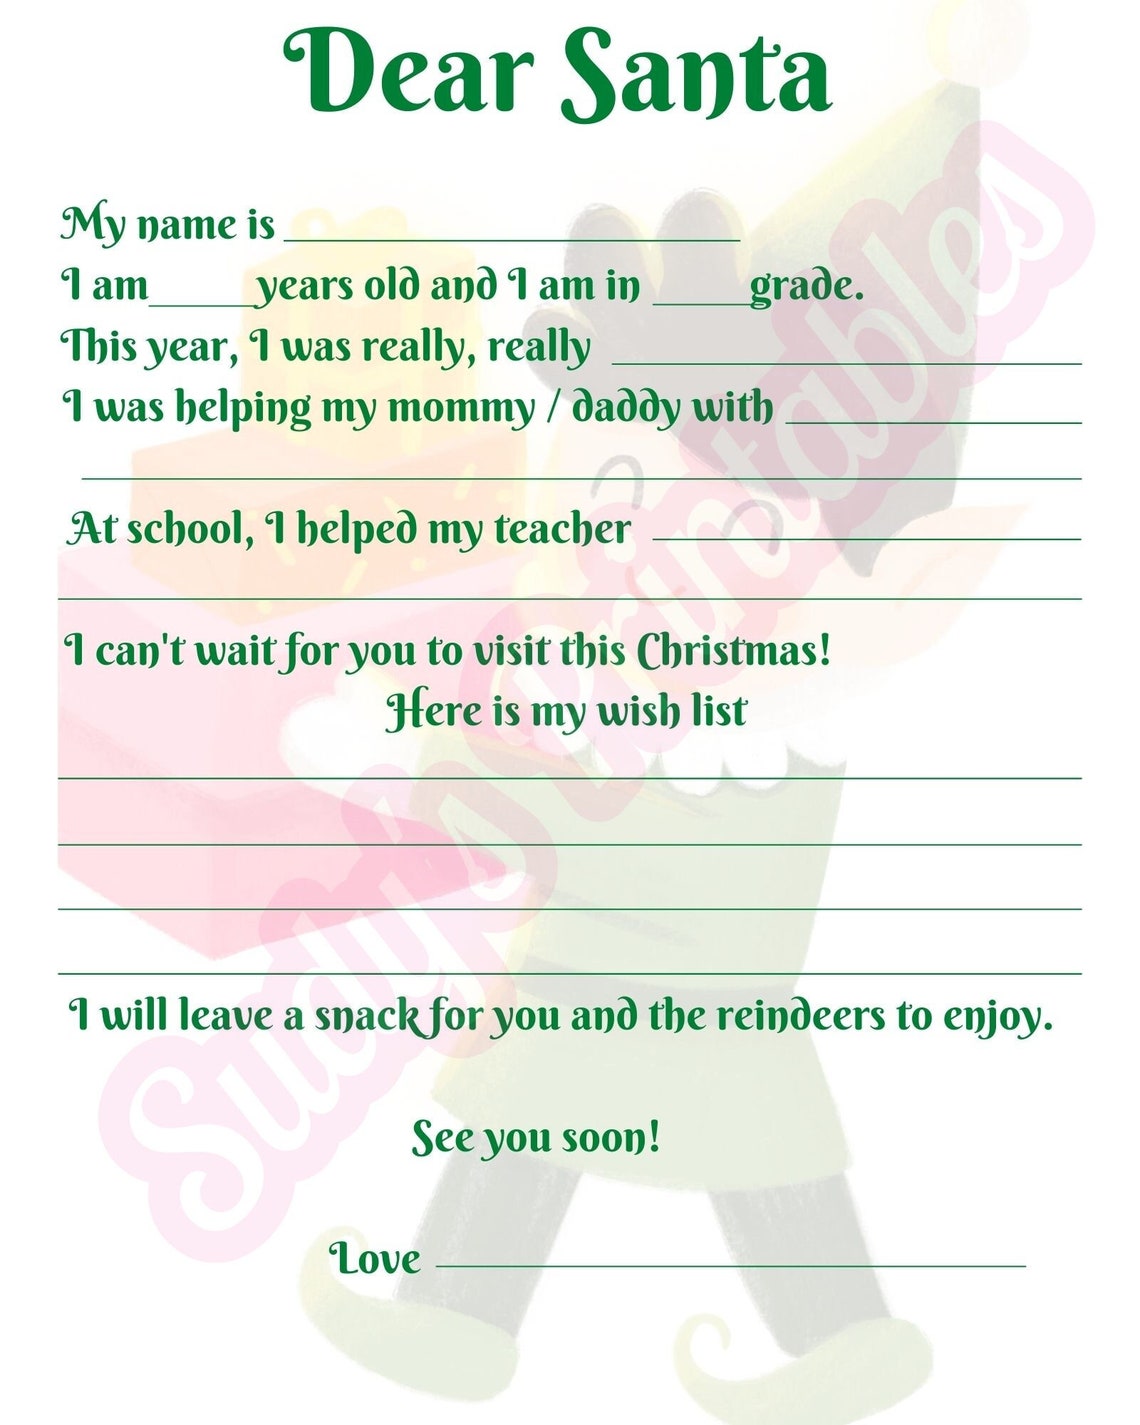 Dear Santa
My name is
I am years old and I am in grade.
This year, I was really, really
I was helping my mommy / daddy with
At school, I helped my teacher
I can't wait for you to visit this Christmas!
Here is my wish list
I will leave a snack for you and the reindeers to enjoy.
See you soon!
Love
Sudy's Printables